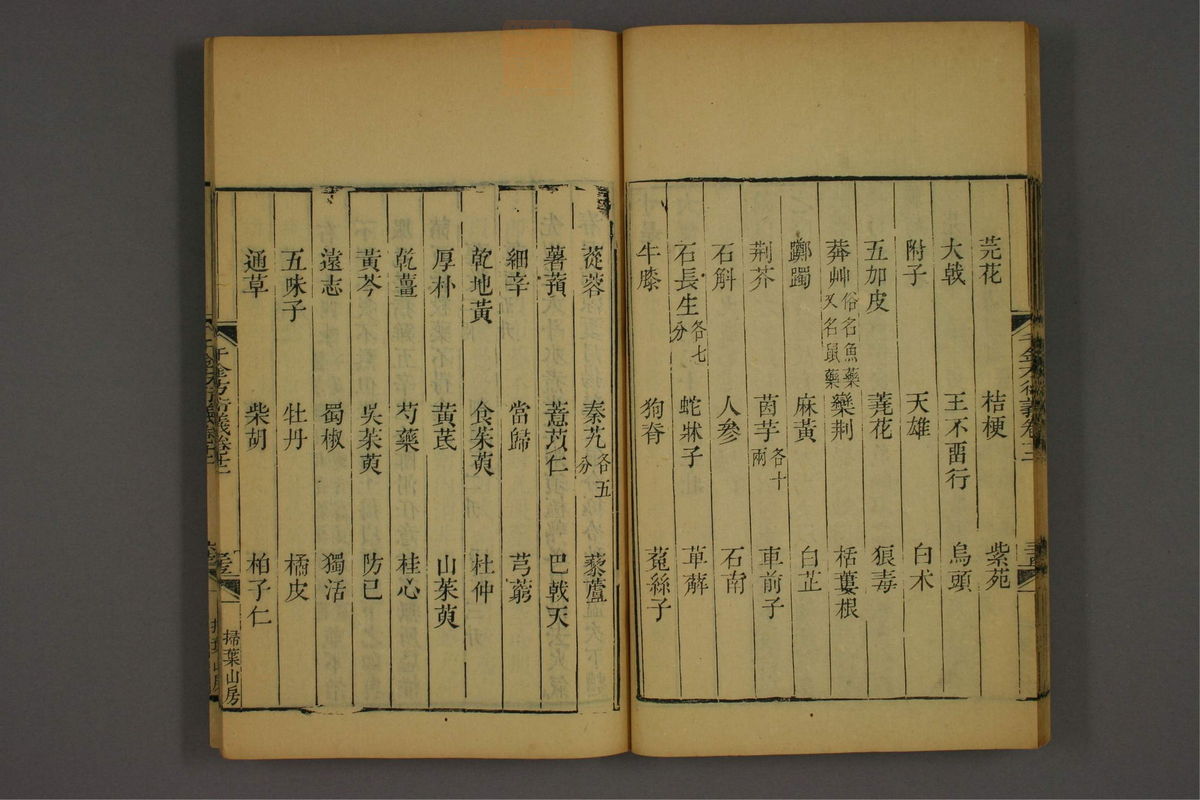 芫花 桔梗 紫苑
大戟 王不畱行 烏頭
附子 天雄 白术
五加皮 蕘花 狼毒
莽艸俗名魚藥又名鼠藥 欒荆 栝蔞根
躑躅 麻黃 白芷
荆芥 茵芋各十兩 車前子
石斛 人參 石南
石長生各七分 蛇牀子 萆薢
牛膝 狗脊 菟絲子
蓯蓉 秦艽各五分 藜蘆
薯蕷 薏苡仁 巴戟天
細辛 當歸 芎藭
乾地黃 食茱萸 杜仲
厚朴 黃芪 山茱萸
乾薑 芍藥 桂心
黃芩 吳茱萸 防已
遠志 蜀椒 獨活
五味子 牡丹 橘皮
通草 柴胡 柏子仁
千金方衍義卷十二
掃葉山房